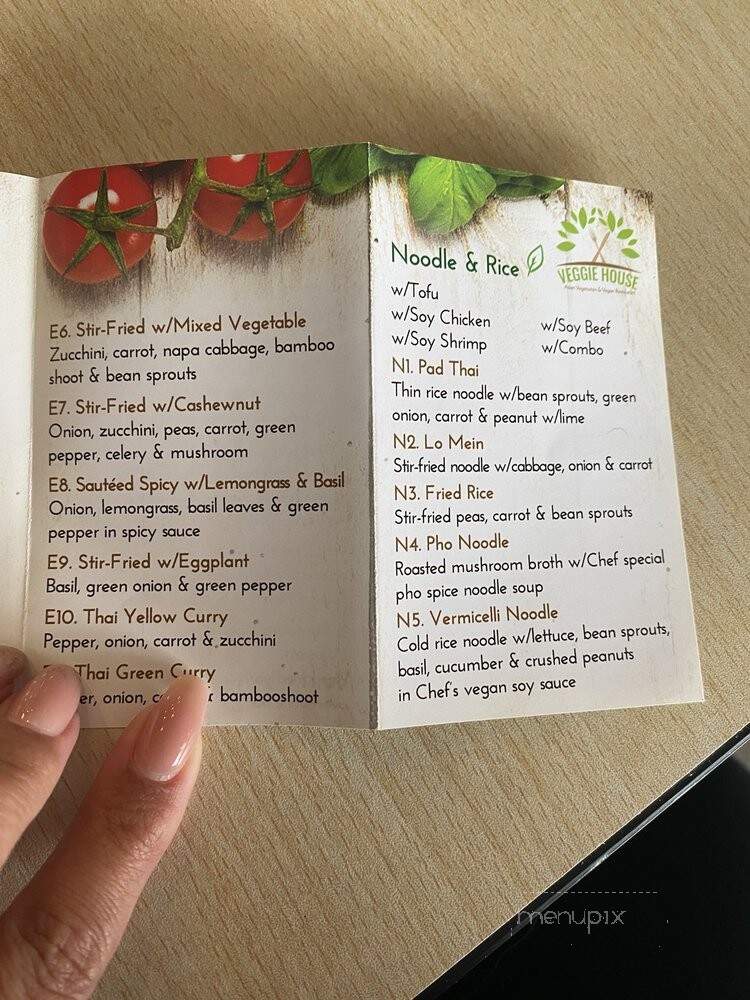 E6. Stir-Fried w/Mixed Vegetable
Zucchini, carrot, napa cabbage, bamboo
shoot & bean sprouts
E7. Stir-Fried w/Cashewnut
Onion, zucchini, peas, carrot, green
pepper, celery & mushroom
E8. Sautéed Spicy w/Lemongrass & Basil
Onion, lemongrass, basil leaves & green
pepper in spicy sauce
E9. Stir-Fried w/Eggplant
Basil, green onion & green pepper
E10. Thai Yellow Curry
Pepper, onion, carrot & zucchini
Thai Green Curry
onion, & bambooshoot
Noodle & Rice
VEGGIE HOUSE
Asian Vegetarian & Vegan Restaurant
w/Tofu
w/Soy Chicken w/Soy Beef
w/Soy Shrimp w/Combo
N1. Pad Thai
Thin rice noodle w/bean sprouts, green
onion, carrot & peanut w/lime
N2. Lo Mein
Stir-fried noodle w/cabbage, onion & carrot
N3. Fried Rice
Stir-fried peas, carrot & bean sprouts
N4. Pho Noodle
Roasted mushroom broth w/Chef special
pho spice noodle soup
N5. Vermicelli Noodle
Cold rice noodle w/lettuce, bean sprouts,
basil, cucumber & crushed peanuts
in Chef's vegan soy sauce
menupix